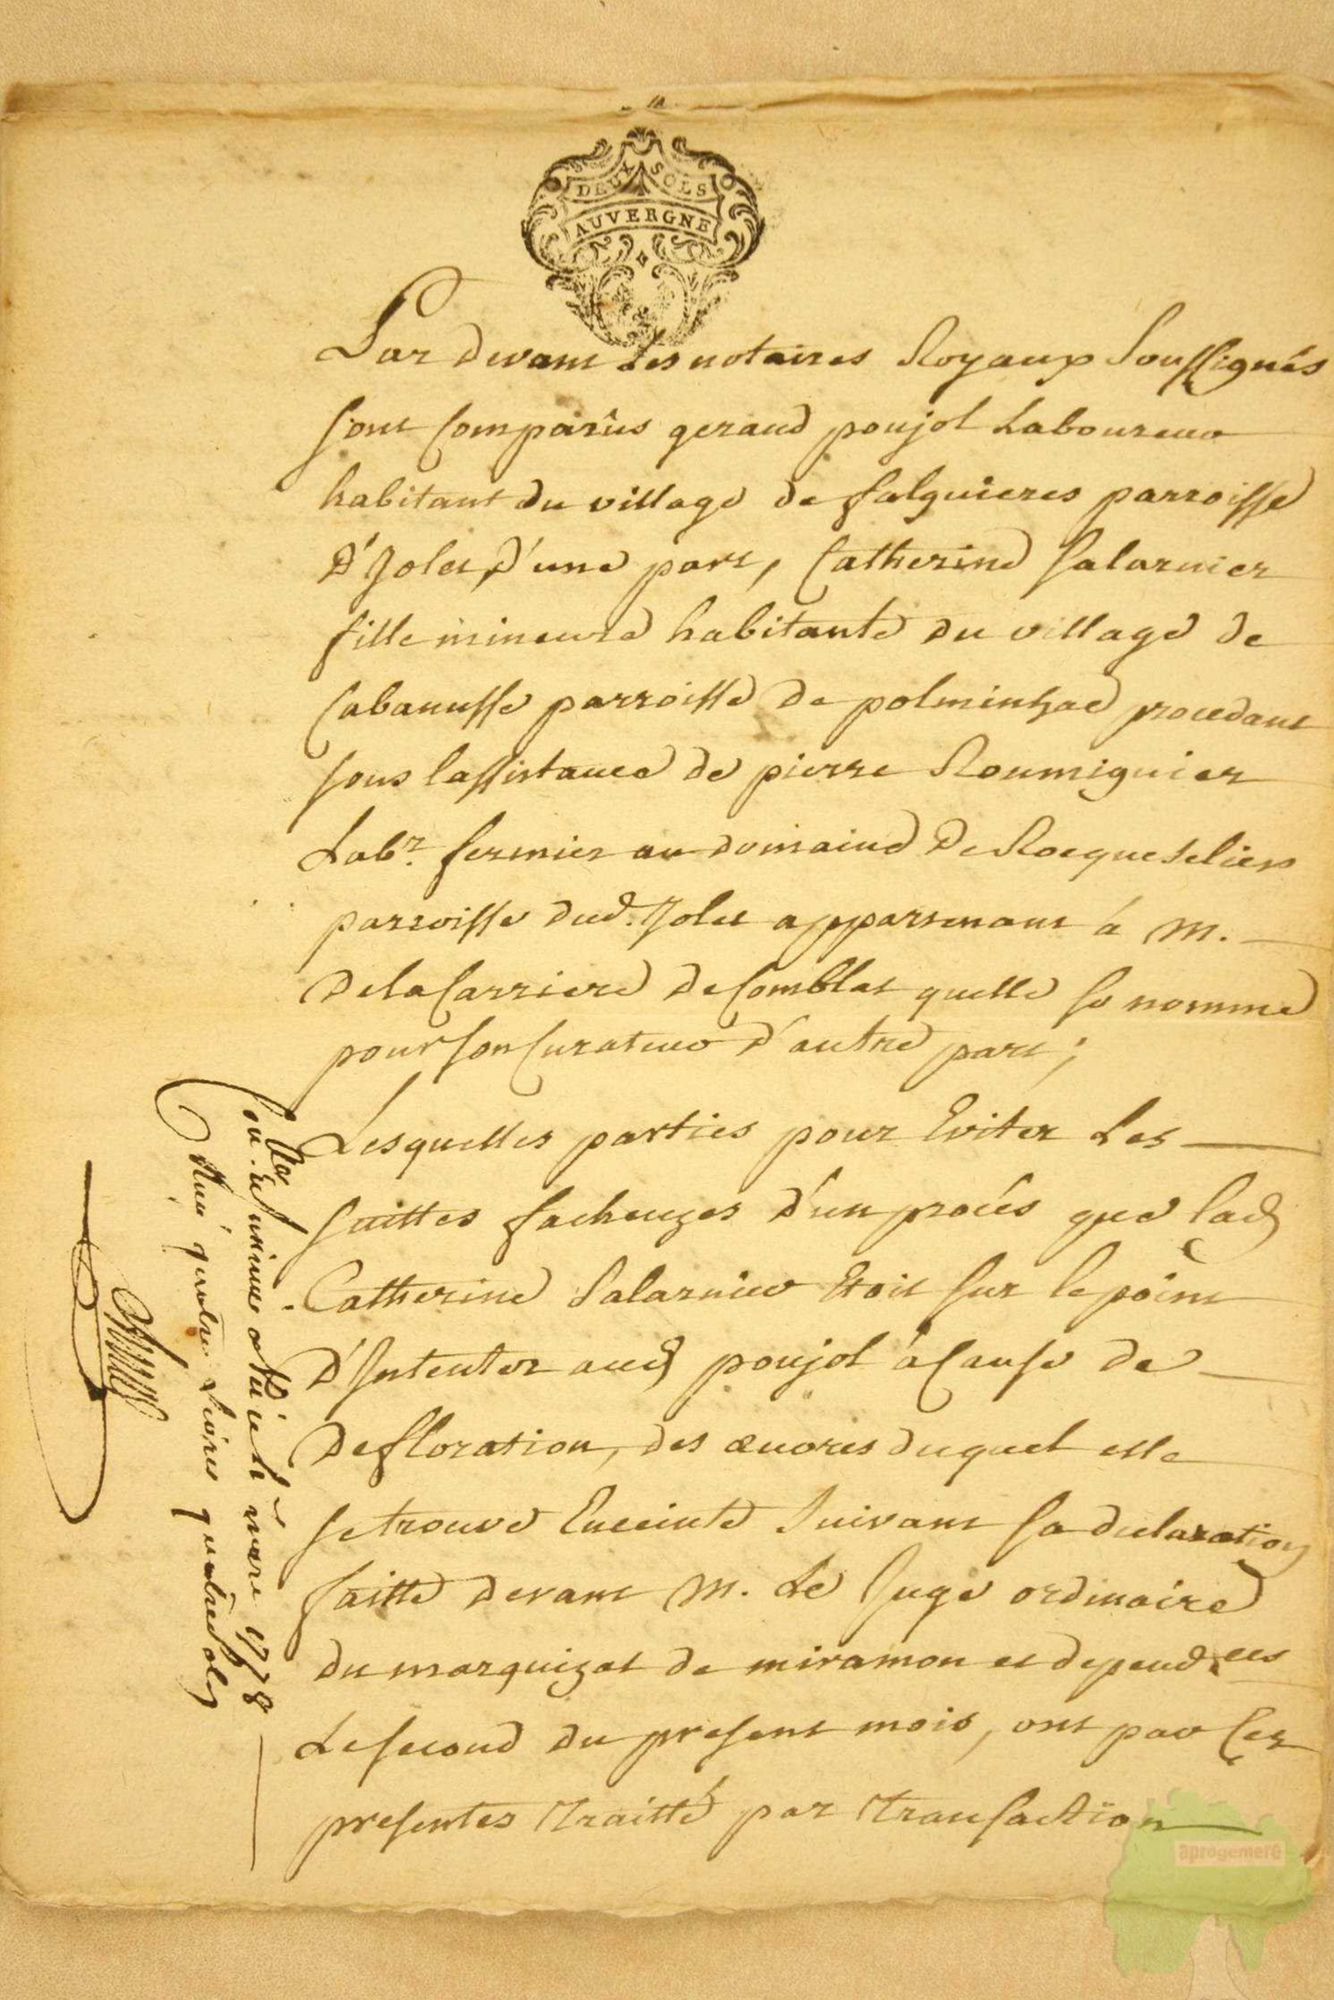 DEUX SOLS
AUVERGNE
Par devant Les notaires Royaux Soussignés
sont Comparûs geraud poujol Laboureur
habitant du village de falguieres parroisse
d'Jolet, d'une part, Catherine Salarnier
fille mineure habitante du village de
Cabanusse parroisse de polminhac procedant
sous l'assistance de pierre Roumiguier
Labr. fermier au domaine De
parroisse dud. Jolet appartenant à M.
De la Carriere De Comblat quelle se nomme
pour son Curateur d'autre part;
Lesquelles parties pour Eviter Les
suittes facheuzes d'un procés que lad
Catherine Salarnier Etoit sur le point
d'Intenter aud poujol à Cause de
Defloration, des œuvres duquel elle
se trouve Enceinte Suivant sa declaration
faitte devant M. Le Juge ordinaire
du marquizat de miramon et depend.ces
Le second du present mois, ont par Ces
presentes traitté par transaction
mars 1778
quatre Livres quatre sols
aprogemere